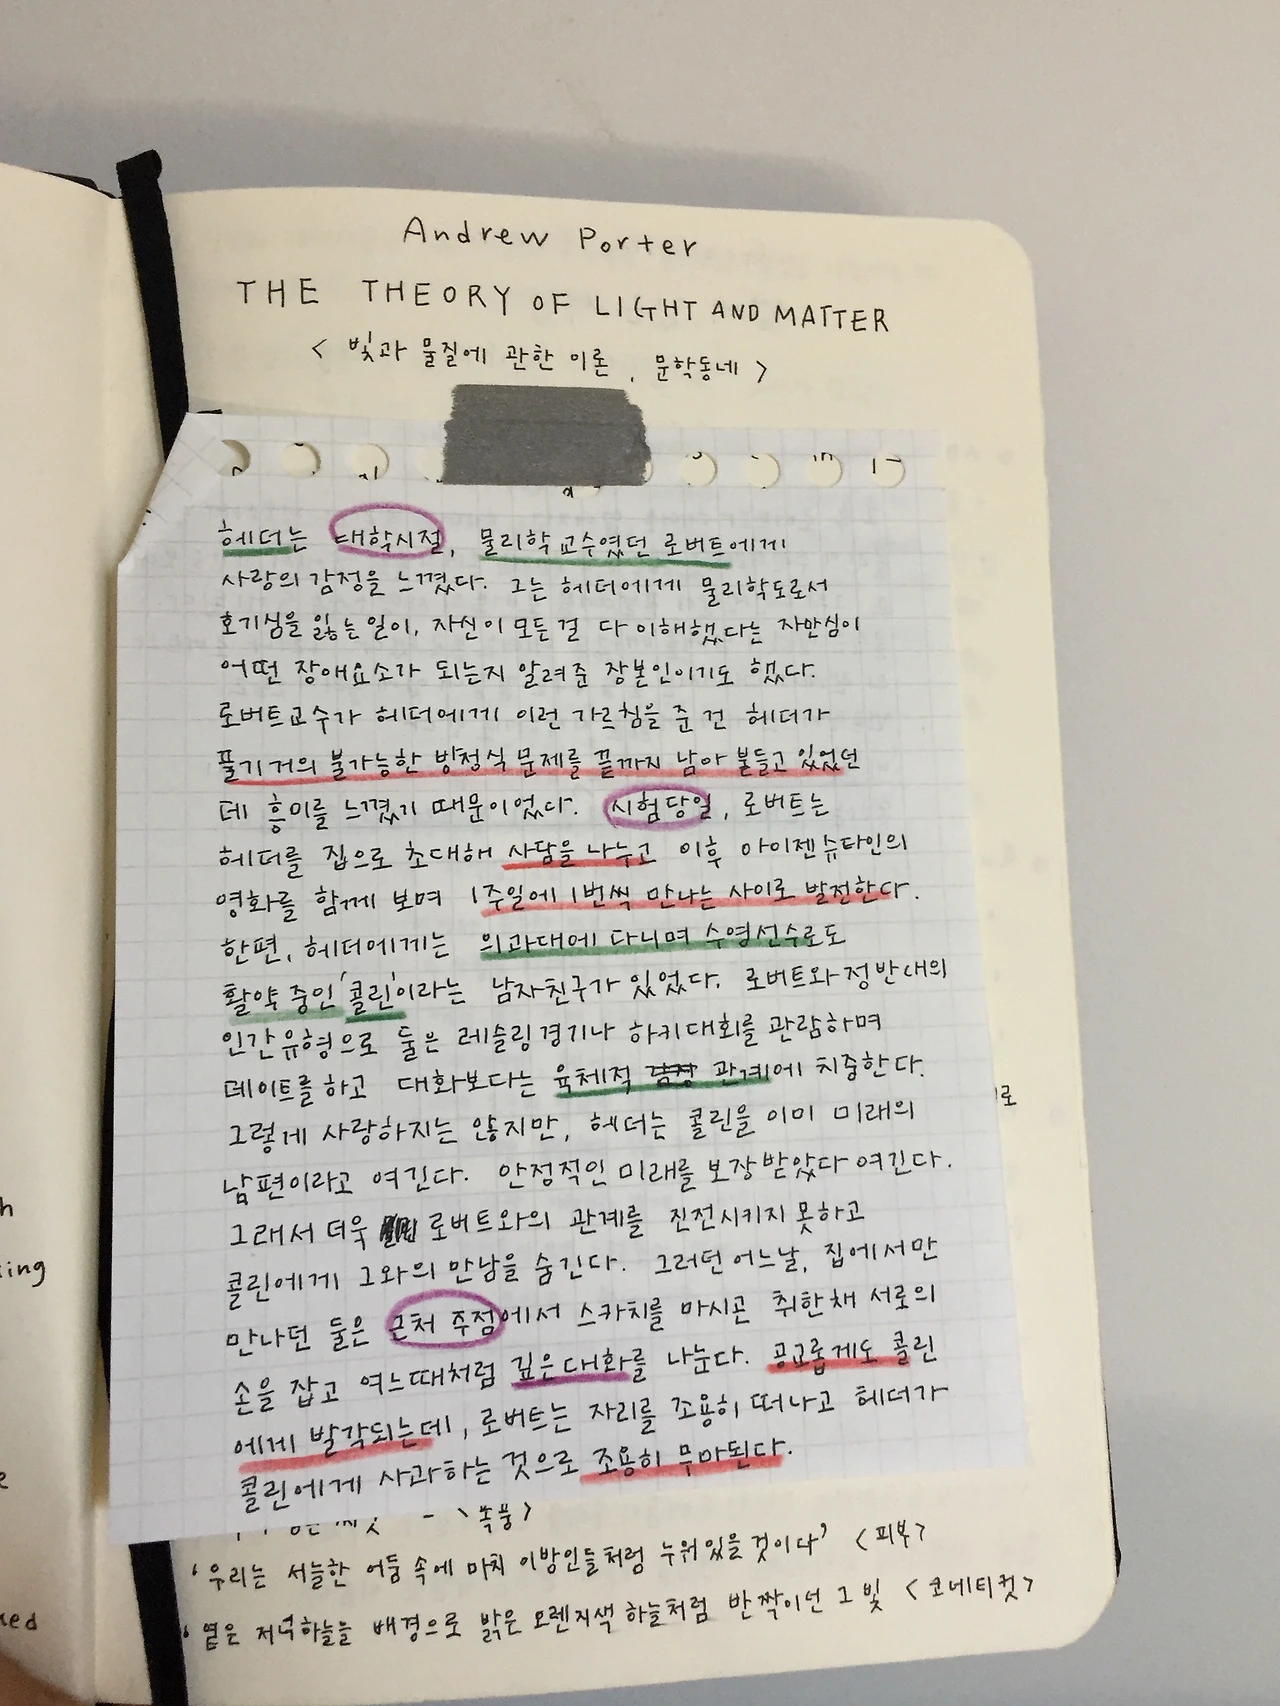 Andrew Porter
THE THEORY OF LIGHT AND MATTER
< 빛과 물질에 관한 이론, 문학동네 >
헤더는 대학시절, 물리학교수였던 로버트에게
사랑의 감정을 느꼈다. 그는 헤더에게 물리학도로서
호기심을 잃는일이, 자신이 모든걸 다 이해했다는 자만심이
어떤 장애요소가 되는지 알려준 장본인이기도 했다.
로버트교수가 헤더에게 이런 가르침을 준 건 헤더가
풀기 거의 불가능한 방정식 문제를 끝까지 남아 붙들고 있었던
데 흥미를 느꼈기 때문이었다. 시험당일, 로버트는
헤더를 집으로 초대해 사담을 나누고 이후 아이젠슈타인의
영화를 함께 보며 1주일에 1번씩 만나는 사이로 발전한다.
한편, 헤더에게는 의과대에 다니며 수영선수로도
활약 중인 '콜린'이라는 남자친구가 있었다. 로버트와 정반대의
인간유형으로 둘은 레슬링경기나 하키대회를 관람하며
데이트를 하고 대화보다는 육체적 관계에 치중한다.
그렇게 사랑하지는 않지만, 헤더는 콜린을 이미 미래의
남편이라고 여긴다. 안정적인 미래를 보장받았다 여긴다.
그래서 더욱 로버트와의 관계를 진전시키지 못하고
콜린에게 그와의 만남을 숨긴다. 그러던 어느날, 집에서만
만나던 둘은 근처 주점에서 스카치를 마시곤 취한채 서로의
손을 잡고 여느때처럼 깊은대화를 나눈다. 공교롭게도 콜린
에게 발각되는데, 로버트는 자리를 조용히 떠나고 헤더가
콜린에게 사과하는 것으로 조용히 무마된다.
로
<폭풍>
'우리는 서늘한 어둠 속에 마치 이방인들처럼 누워있을 것이다' <피부>
'옅은 저녁하늘을 배경으로 밝은 오렌지색 하늘처럼 반짝이던 그 빛 <코네티컷>